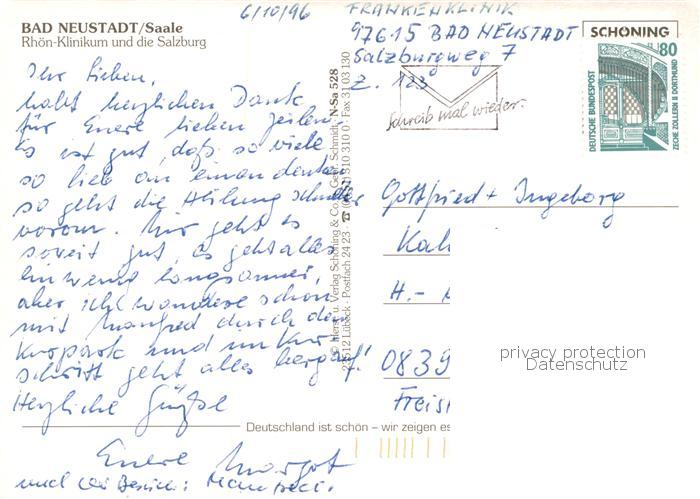 6/10/96 FRANKENKLINIK
97615 BAD NEUSTADT
Salzburgweg 7
Z. 123
BAD NEUSTADT/Saale
Rhön-Klinikum und die Salzburg
SCHÖNING
80
DEUTSCHE BUNDESPOST
ZECHE ZOLLERN II DORTMUND
Schreib mal wieder.
Ihr Lieben,
habt herzlichen Dank
für Euere lieben Zeilen.
Es ist gut, daß so viele
so lieb an einen denken
so geht die Heilung schneller
voran. Mir geht es
soweit gut, es geht alles
ein wenig langsamer,
aber ich wandere schon
mit Manfred durch den
Kurpark und im Kur
schritt geht alles bergauf!
Herzliche Grüße
Euere Margot
und der Besuch: Manfred.
Schöning & Co. + Gebr. Schmidt, N-Sa 528
23512 Lübeck · Postfach 24 23 · Fax 31 03 130
Gottfried + Ingeborg
Kah
H.-
0839
Freis
privacy protection
Datenschutz
Deutschland ist schön – wir zeigen es